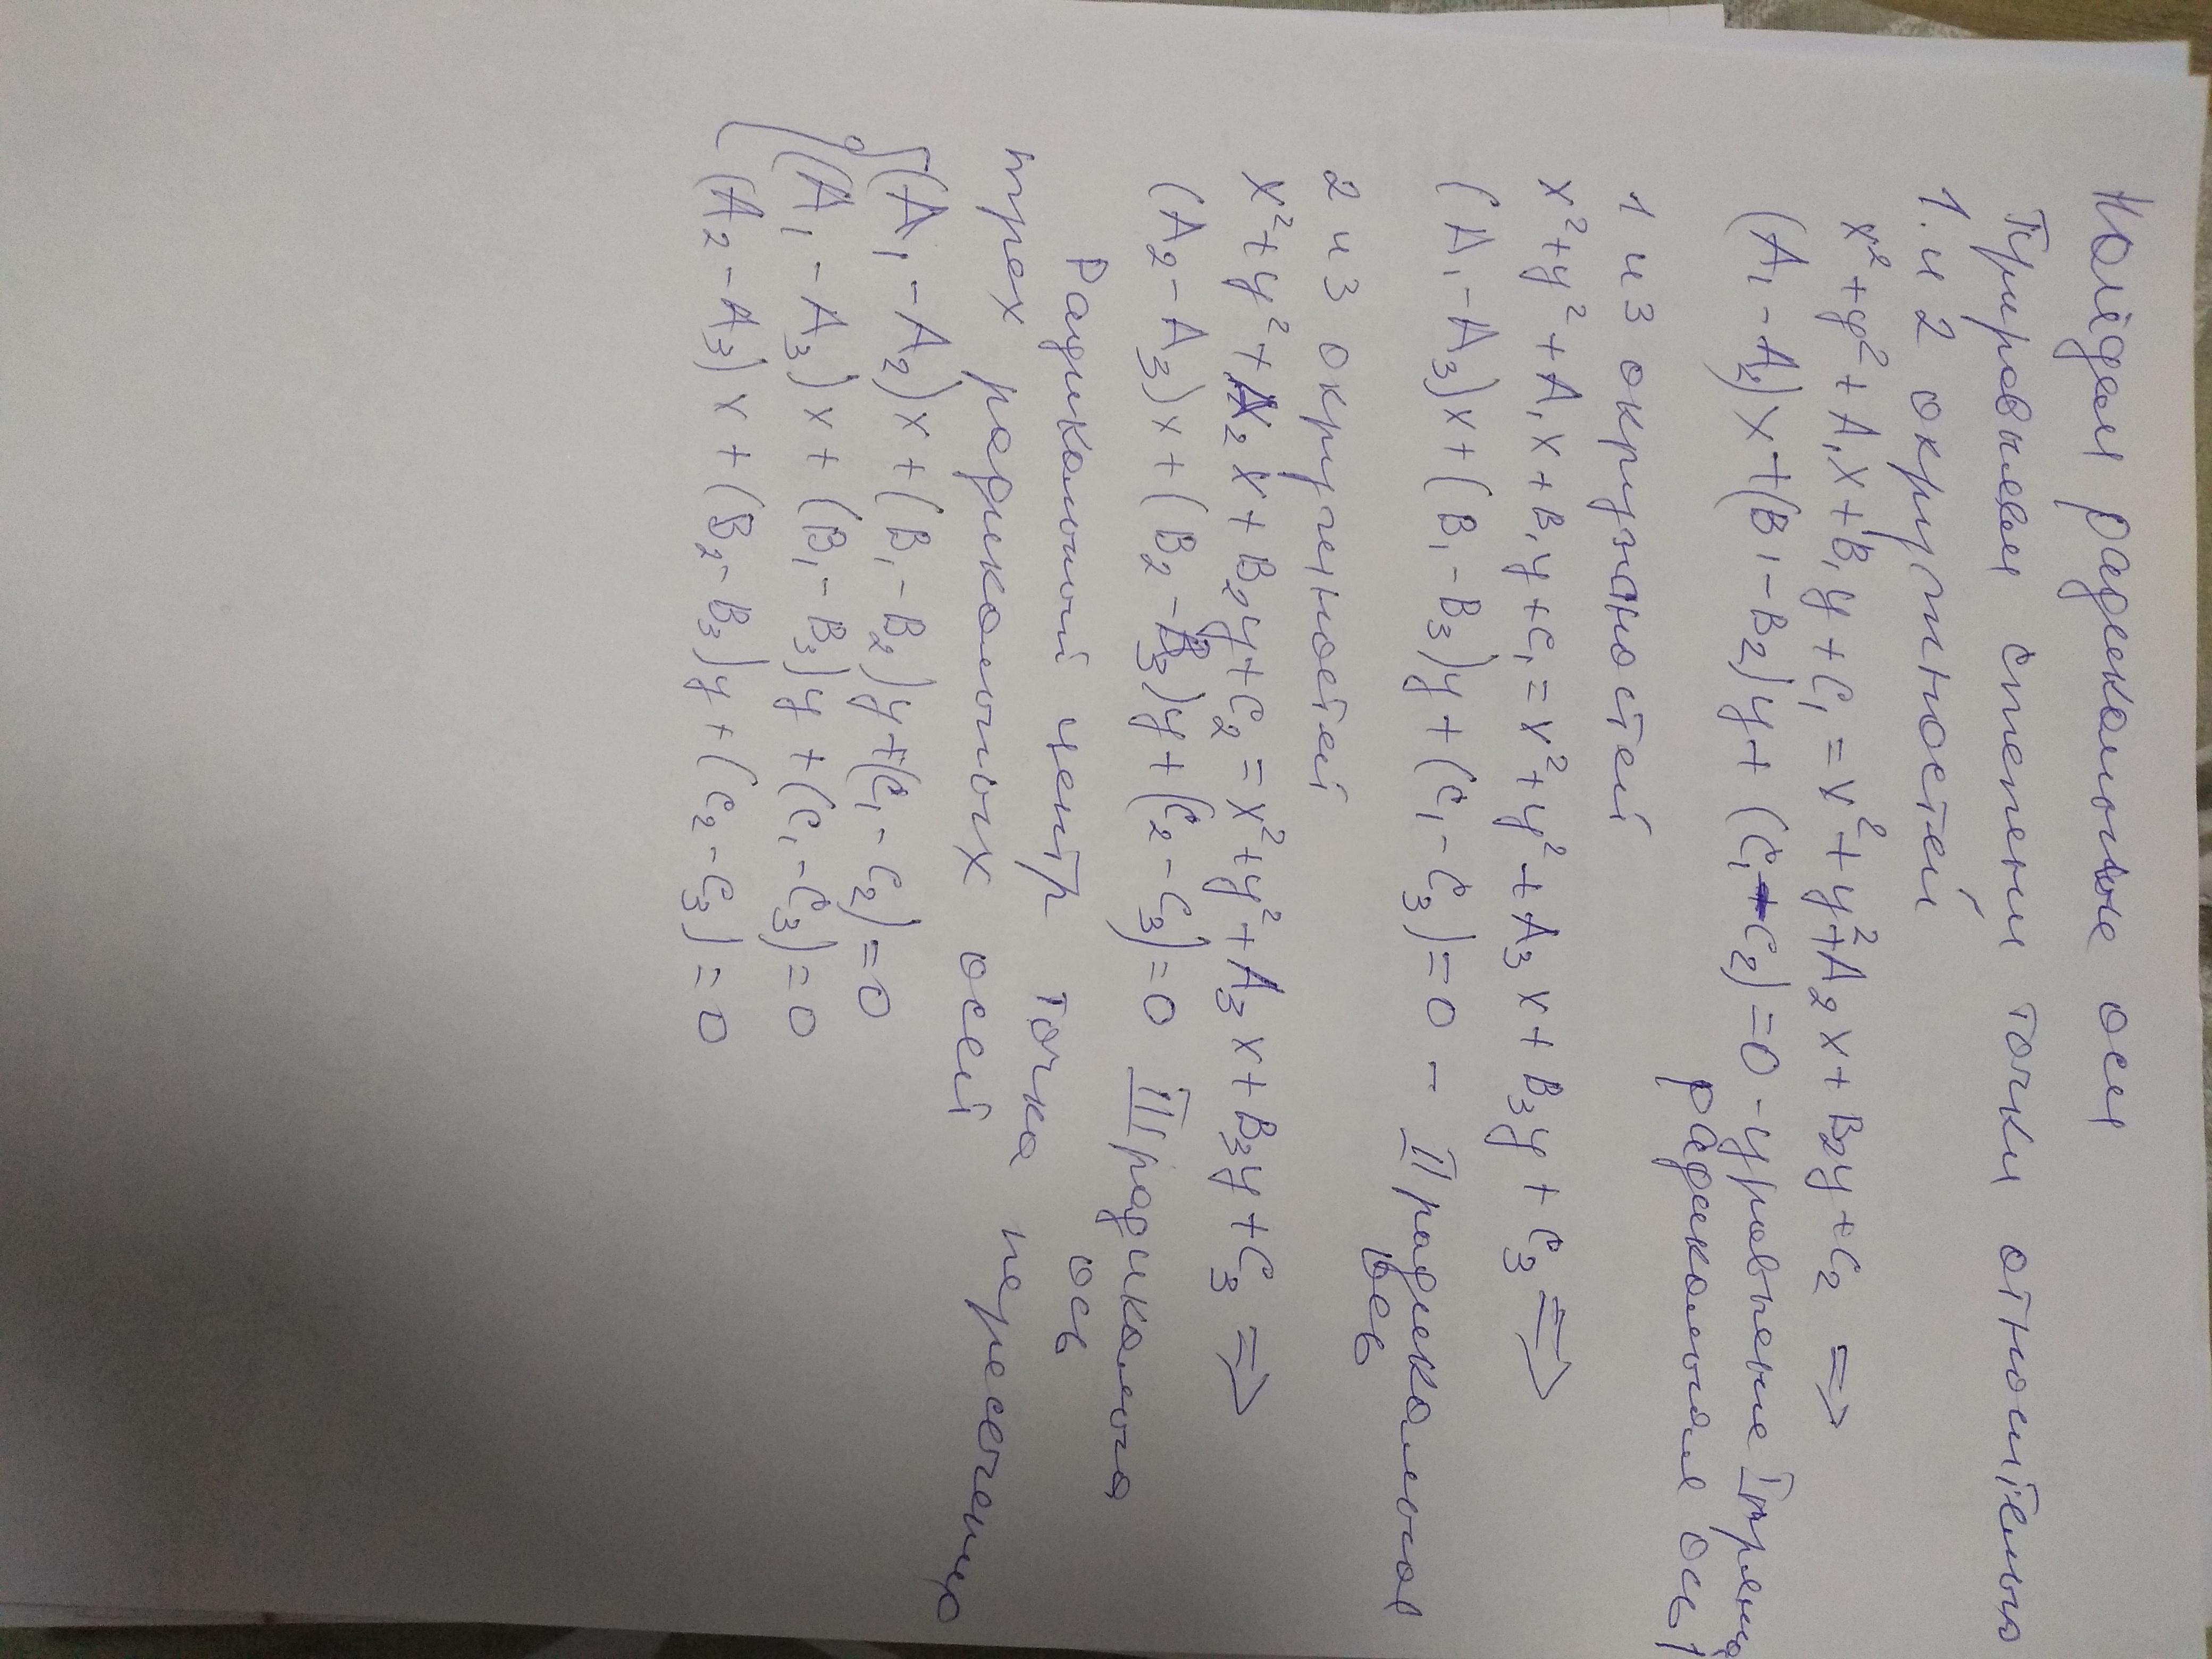 Найдём радикальные оси
Приравняем степени точки относительно
1. и 2 окружностей
x² + y² + A₁x + B₁y + C₁ = x² + y² + A₂x + B₂y + C₂ =>
(A₁ - A₂)x + (B₁ - B₂)y + (C₁ - C₂) = 0 - уравнение I
радикальная ось
1 и 3 окружностей
x² + y² + A₁x + B₁y + C₁ = x² + y² + A₃x + B₃y + C₃ =>
(A₁ - A₃)x + (B₁ - B₃)y + (C₁ - C₃) = 0 - II радикальная
ось
2 и 3 окружностей
x² + y² + A₂x + B₂y + C₂ = x² + y² + A₃x + B₃y + C₃ =>
(A₂ - A₃)x + (B₂ - B₃)y + (C₂ - C₃) = 0 III радикальна
ось
Радикальный центр точка пересечению
трех радикальных осей
(A₁ - A₂)x + (B₁ - B₂)y + (C₁ - C₂) = 0
(A₁ - A₃)x + (B₁ - B₃)y + (C₁ - C₃) = 0
(A₂ - A₃)x + (B₂ - B₃)y + (C₂ - C₃) = 0